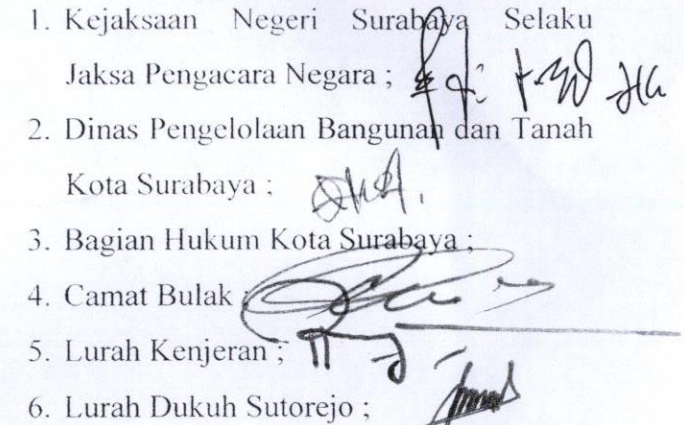 1. Kejaksaan Negeri Surabaya Selaku
Jaksa Pengacara Negara ;
2. Dinas Pengelolaan Bangunan dan Tanah
Kota Surabaya ;
3. Bagian Hukum Kota Surabaya ;
4. Camat Bulak ;
5. Lurah Kenjeran ;
6. Lurah Dukuh Sutorejo ;